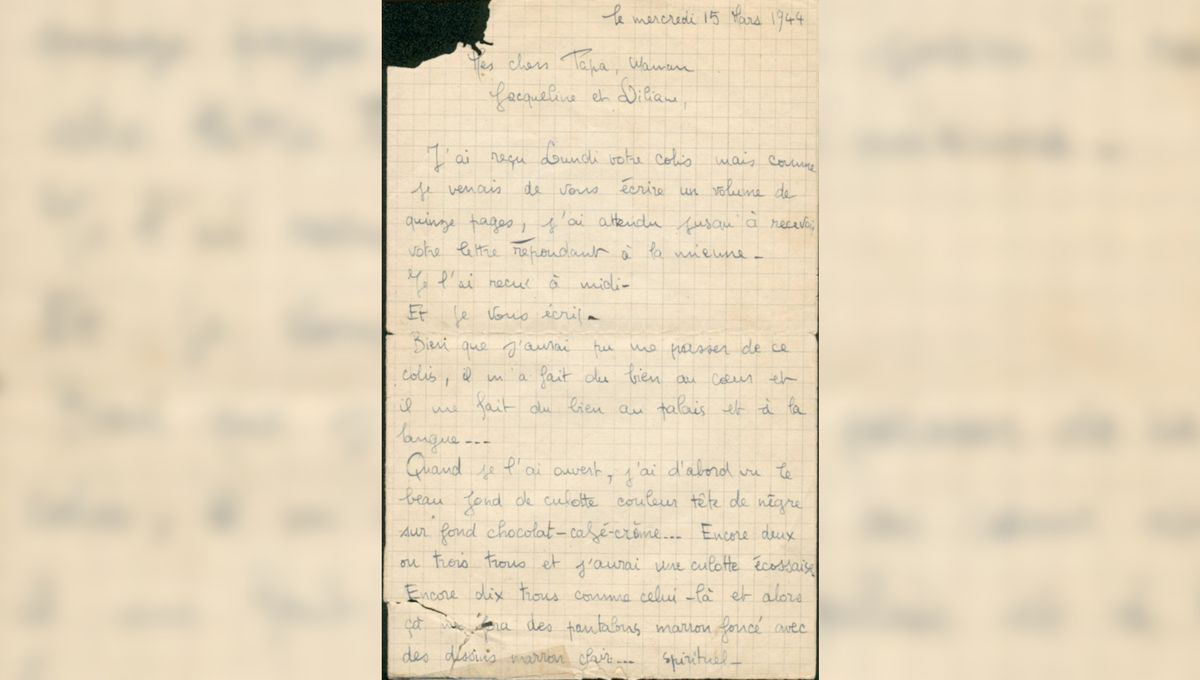 le mercredi 15 Mars 1944
Mes chers Papa, Maman
Jacqueline et Liliane,
J'ai reçu Lundi votre colis mais comme
je venais de vous écrire un volume de
quinze pages, j'ai attendu jusqu'à recevoir
votre lettre répondant à la mienne -
Je l'ai recue à midi-
Et je vous écris-
Bien que j'aurai pu me passer de ce
colis, il m'a fait du bien au cœur et
il me fait du bien au palais et à la
langue---
Quand je l'ai ouvert, j'ai d'abord vu le
beau fond de culotte couleur tête de nègre
sur fond chocolat-café-crème... Encore deux
ou trois trous et j'aurai une culotte écossaise
Encore dix trous comme celui-là et alors
ça me fera des pantalons marron foncé avec
des dessins marron clair... spirituel-